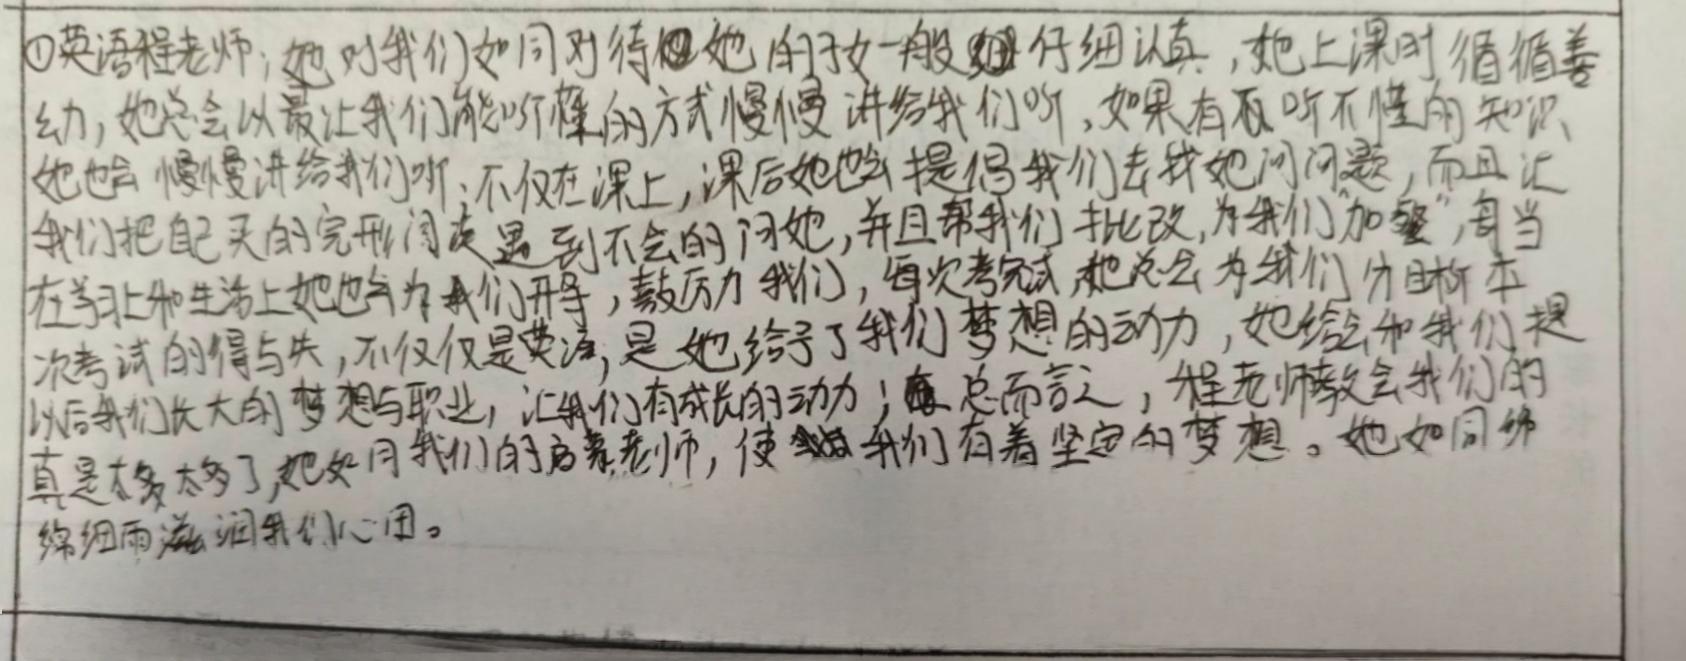 ①英语程老师；她对我们如同对待她的子女一般仔细认真，她上课时循循善
幼，她总会以最让我们能听懂的方式慢慢讲给我们听，如果有听不懂的知识
她也会慢慢讲给我们听；不仅在课上，课后她也会提倡我们去找她问问题，而且让
我们把自己买的完形阅读遇到不会的问她，并且帮我们批改，为我们"加餐"，每当
在学习上和生活上她也会为我们开导，鼓励我们，每次考完试她总会为我们分析本
次考试的得与失，不仅仅是英语，是她给予了我们梦想的动力，她给会和我们提
以后我们长大的梦想与职业，让我们有成长的动力；总而言之，程老师教会我们的
真是太多太多了，她如同我们的启蒙老师，使我们有着坚定的梦想。她如同绵
绵细雨滋润我们心田。